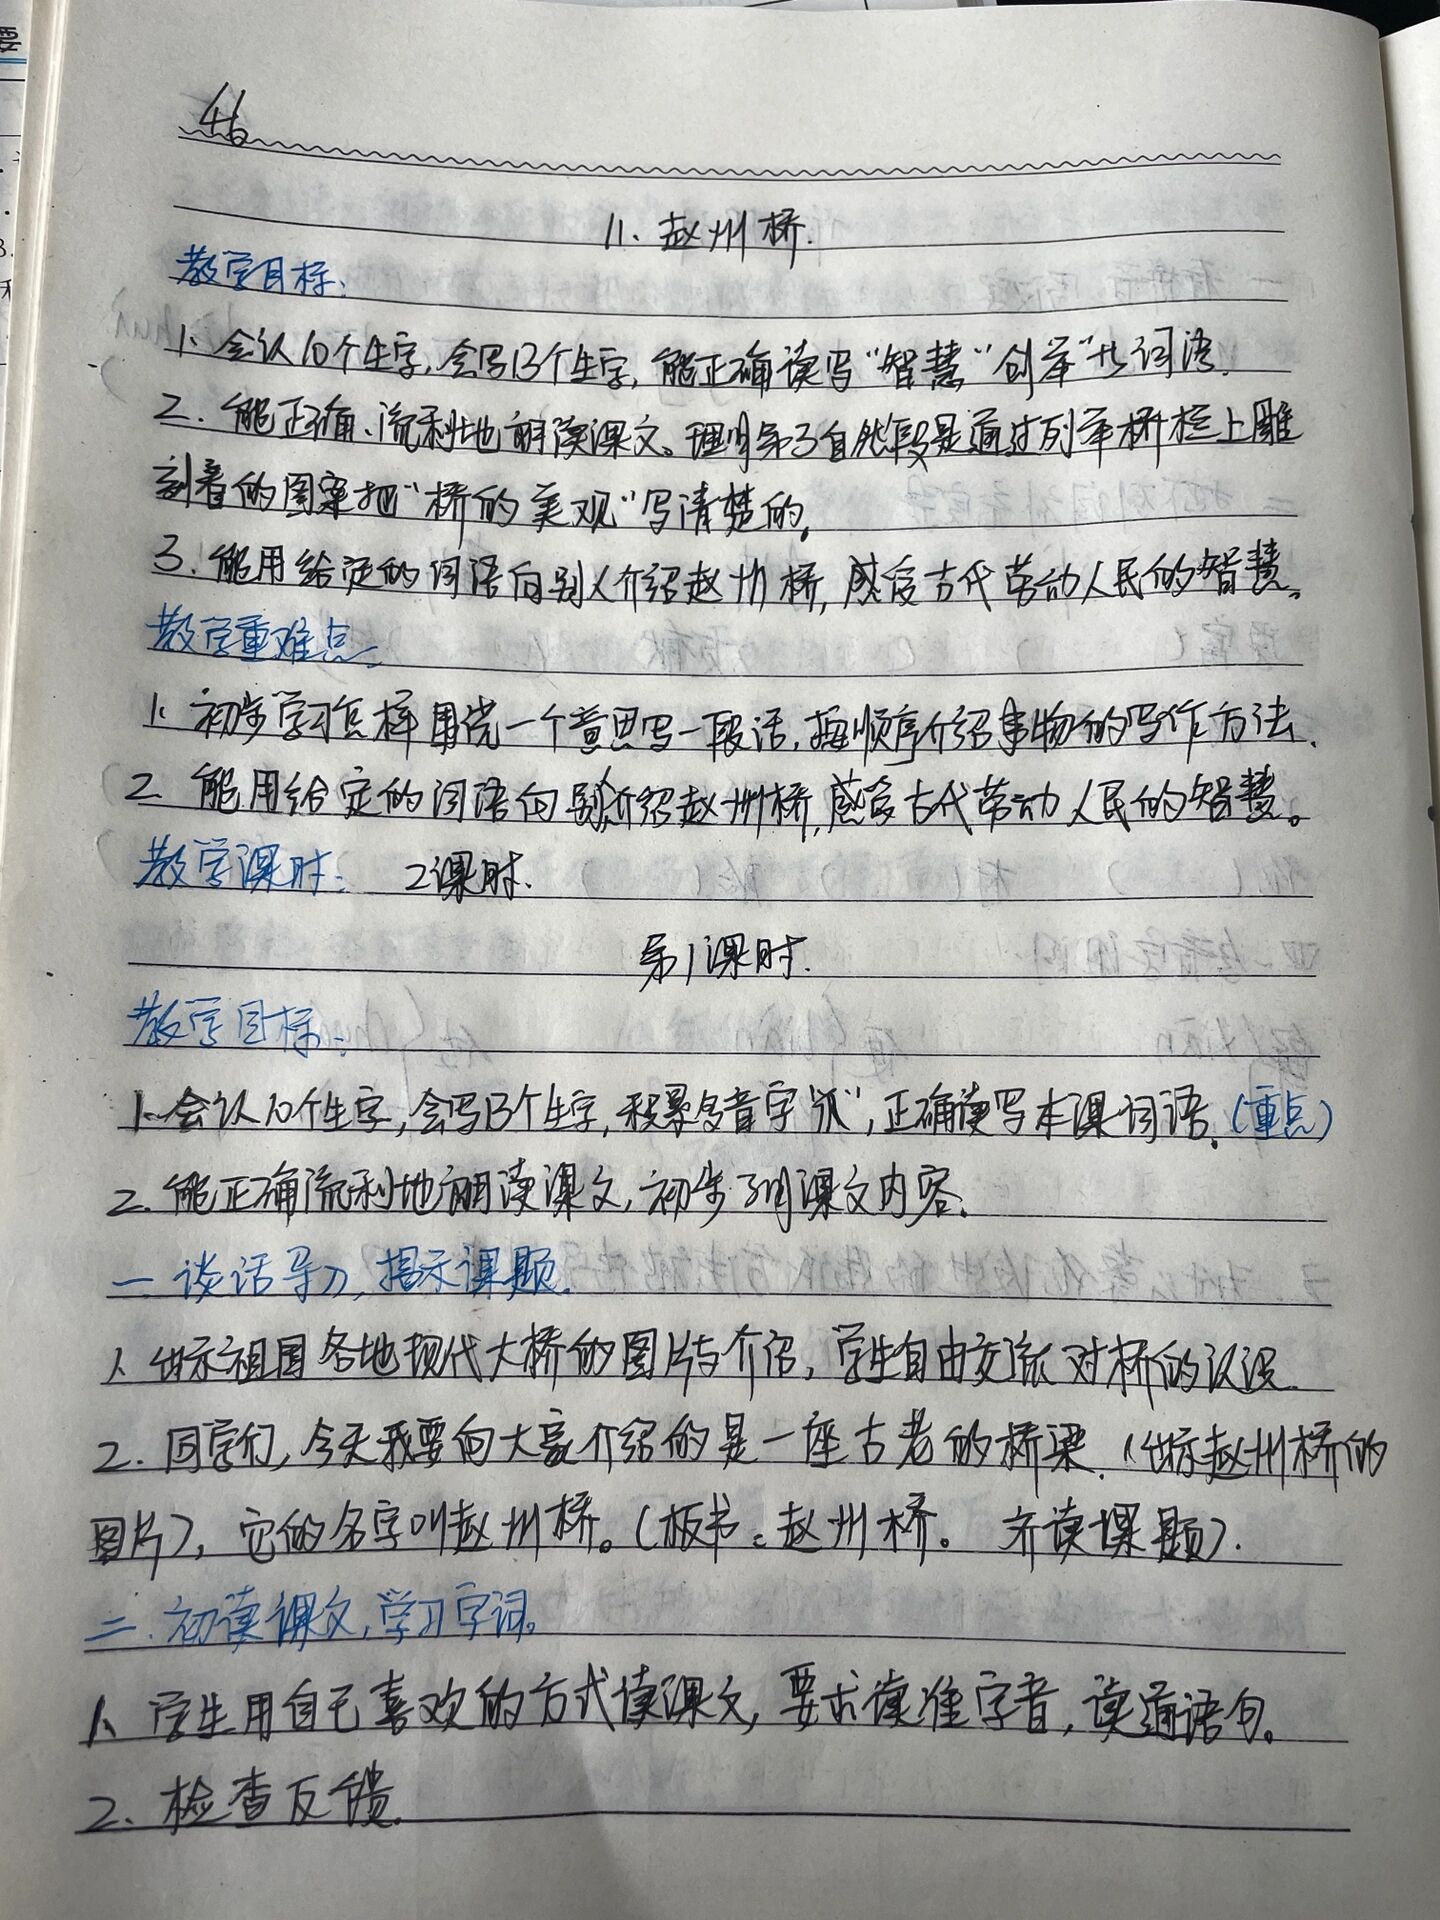 46
11. 赵州桥.
教学目标:
1. 会认10个生字,会写13个生字,能正确读写“智慧”“创举”等词语.
2. 能正确、流利地朗读课文。理解第3自然段是通过列举桥栏上雕
刻着的图案把“桥的美观”写清楚的。
3. 能用给定的词语向别人介绍赵州桥,感受古代劳动人民的智慧。
教学重难点:
1. 初步学习怎样围绕一个意思写一段话,按顺序介绍事物的写作方法.
2. 能用给定的词语向别人介绍赵州桥,感受古代劳动人民的智慧。
教学课时: 2课时.
第1课时.
教学目标:
1. 会认10个生字,会写13个生字,积累多音字“爪”,正确读写本课词语.(重点)
2. 能正确流利地朗读课文,初步了解课文内容.
一. 谈话导入,揭示课题.
1. 出示祖国各地现代大桥的图片与介绍,学生自由交流对桥的认识.
2. 同学们,今天我要向大家介绍的是一座古老的桥梁.(出示赵州桥的
图片),它的名字叫赵州桥。(板书:赵州桥。 齐读课题).
二. 初读课文,学习字词。
1. 学生用自己喜欢的方式读课文,要求读准字音,读通语句。
2. 检查反馈.